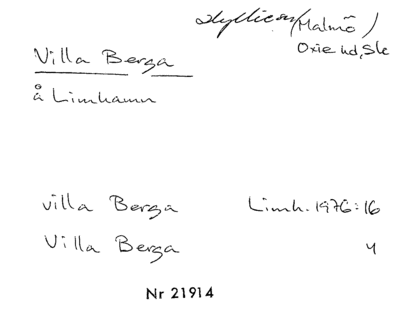 Idyllien (Malmö)
Oxie hd, Sk
Villa Berga
å Limhamn
villa Berga Limh. 1976:16
Villa Berga "
Nr 21914